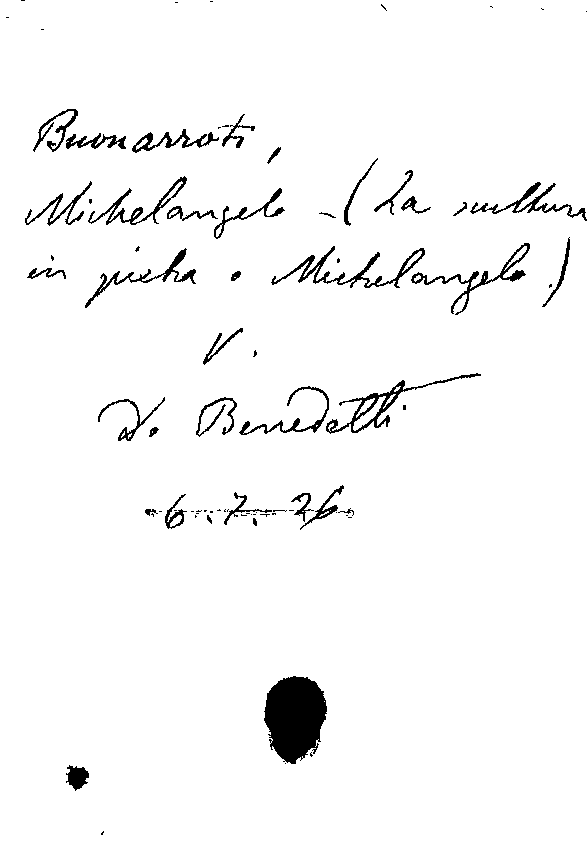 Buonarroti,
Michelangelo - (La scultura
in pietra e Michelangelo)
V.
De Benedetti
6.7.26